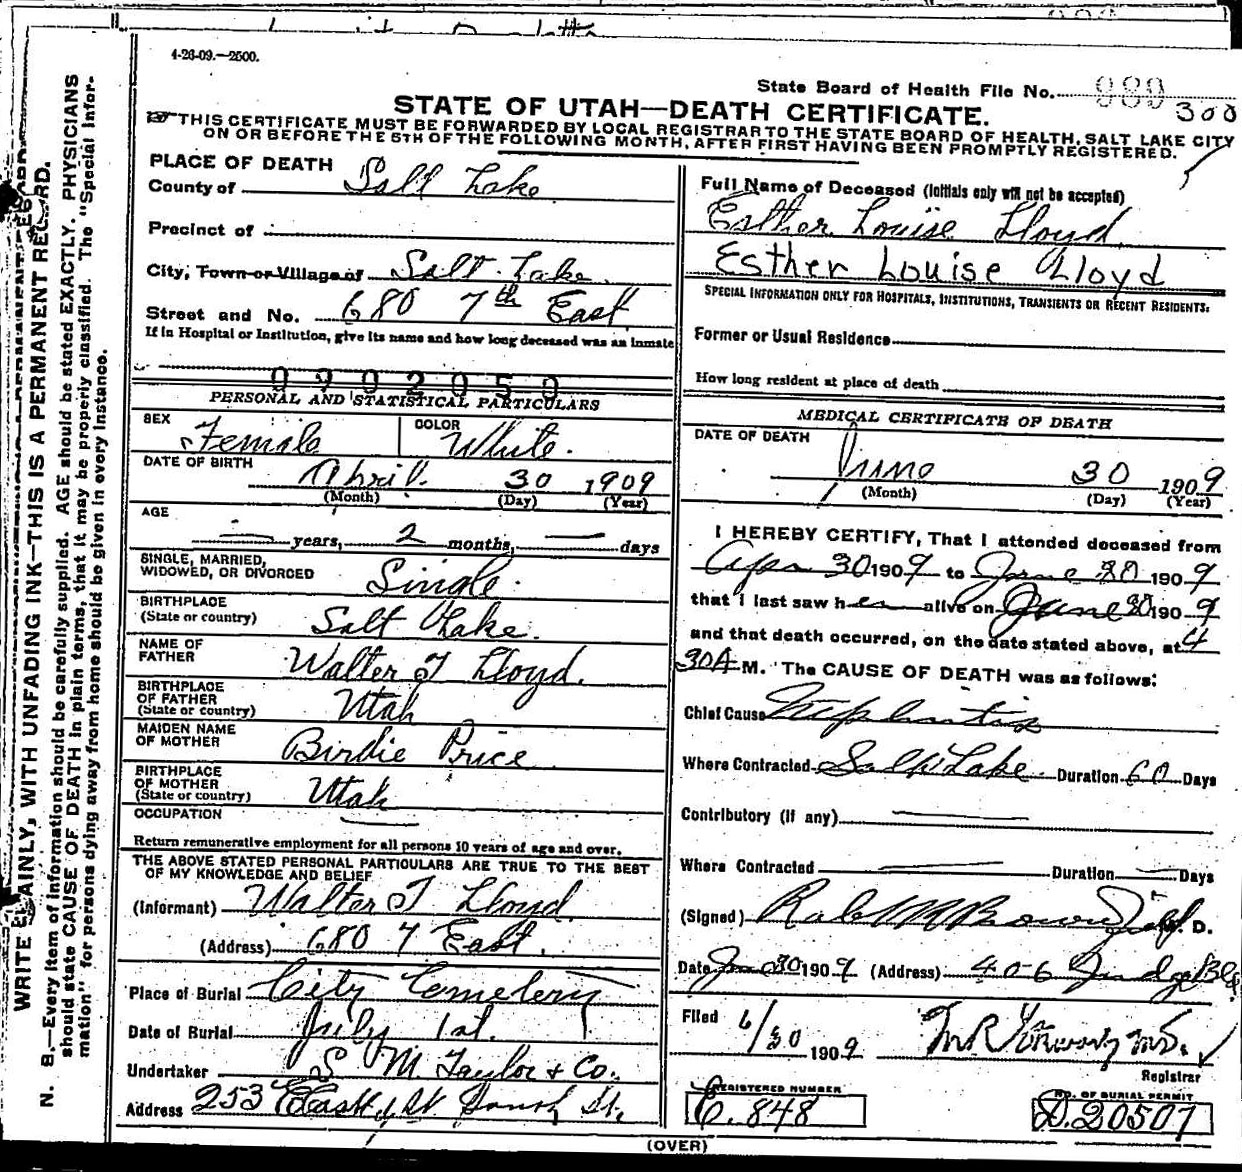 4-26-09.—2500.
State Board of Health File No. 989
300
STATE OF UTAH—DEATH CERTIFICATE.
THIS CERTIFICATE MUST BE FORWARDED BY LOCAL REGISTRAR TO THE STATE BOARD OF HEALTH, SALT LAKE CITY
ON OR BEFORE THE 5TH OF THE FOLLOWING MONTH, AFTER FIRST HAVING BEEN PROMPTLY REGISTERED.
WRITE PLAINLY, WITH UNFADING INK—THIS IS A PERMANENT RECORD.
N. B.—Every item of information should be carefully supplied. AGE should be stated EXACTLY. PHYSICIANS
should state CAUSE OF DEATH in plain terms, that it may be properly classified. The "Special Infor-
mation" for persons dying away from home should be given in every instance.
PLACE OF DEATH
County of Salt Lake
Precinct of
City, Town or Village of Salt Lake
Street and No. 680 7th East
If in Hospital or Institution, give its name and how long deceased was an inmate
0902050
PERSONAL AND STATISTICAL PARTICULARS
SEX Female COLOR White.
DATE OF BIRTH April 30 1909
(Month) (Day) (Year)
AGE
— years, 2 months, — days
SINGLE, MARRIED,
WIDOWED, OR DIVORCED Single.
BIRTHPLACE
(State or country) Salt Lake.
NAME OF
FATHER Walter T Lloyd.
BIRTHPLACE
OF FATHER
(State or country) Utah
MAIDEN NAME
OF MOTHER Birdie Price
BIRTHPLACE
OF MOTHER
(State or country) Utah
OCCUPATION —
Return remunerative employment for all persons 10 years of age and over.
THE ABOVE STATED PERSONAL PARTICULARS ARE TRUE TO THE BEST
OF MY KNOWLEDGE AND BELIEF
(Informant) Walter T Lloyd
(Address) 680 7 East.
Place of Burial City Cemetery
Date of Burial July 1st.
Undertaker S M Taylor & Co.
Address 253 East St.
Full Name of Deceased (Initials only will not be accepted)
Esther Louise Lloyd
Esther Louise Lloyd
SPECIAL INFORMATION ONLY FOR HOSPITALS, INSTITUTIONS, TRANSIENTS OR RECENT RESIDENTS:
Former or Usual Residence
How long resident at place of death
MEDICAL CERTIFICATE OF DEATH
DATE OF DEATH
June 30 1909
(Month) (Day) (Year)
I HEREBY CERTIFY, That I attended deceased from
Apr 30 1909 to June 1909
that I last saw her alive on June 1909
and that death occurred, on the date stated above, at 4
30A M. The CAUSE OF DEATH was as follows:
Chief Cause
Where Contracted Salt Lake. Duration 60 Days
Contributory (if any) —
Where Contracted — Duration — Days
(Signed) M. D.
Date Jun 30 1909 (Address) 406 Judge Bldg
Filed 6/30 1909
Registrar
REGISTERED NUMBER
C. 848
NO. OF BURIAL PERMIT
D. 20507
(OVER)